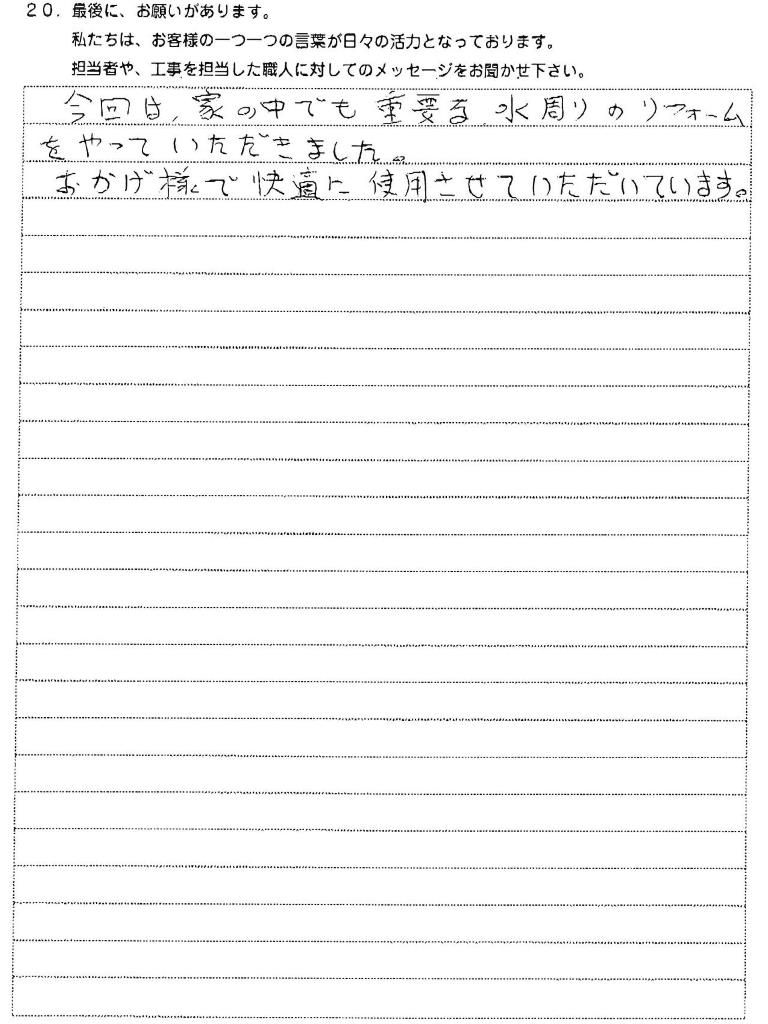 20. 最後に、お願いがあります。
私たちは、お客様の一つ一つの言葉が日々の活力となっております。
担当者や、工事を担当した職人に対してのメッセージをお聞かせ下さい。
今回は、家の中でも重要な、水周りのリフォーム
をやっていただきました。
おかげ様で快適に使用させていただいています。